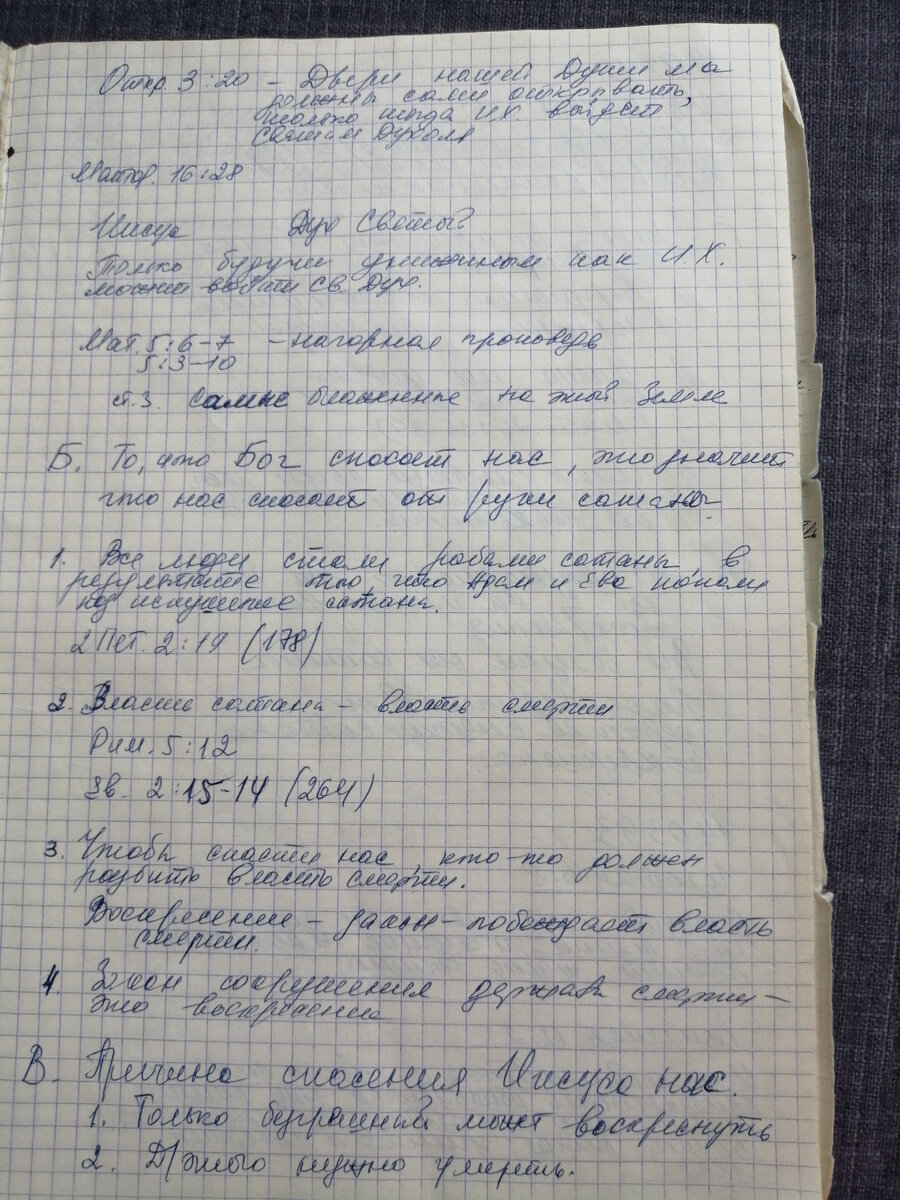 Откр. 3:20 – Двери нашей Души мы
должны сами открывать,
только тогда И.Х. войдет
Святым Духом
Матф. 16:28
Иисус Дух Святый
Только будучи как И.Х.
может войти Св. Дух.
Мат. 5:6–7 – нагорная проповедь
5:3–10
ст. 3. Самые блаженные на этой Земле
Б. То, что Бог спасает нас, это значит
что нас спасает от руки сатаны.
1. Все люди стали рабами сатаны в
результате того, что Адам и Ева попали
под искушение сатаны.
2 Пет. 2:19 (178)
2. Власть сатаны – власть смерти
Рим. 5:12
Ев. 2:15–14 (264)
3. Чтобы спасти нас, кто-то должен
разбить власть смерти.
Воскресение – закон – побеждает власть
смерти.
4. Закон сокрушения державы смерти –
это воскресение
В. Причина спасения Иисуса нас.
1. Только безгрешный может воскреснуть
2. Д/этого нужно умереть.